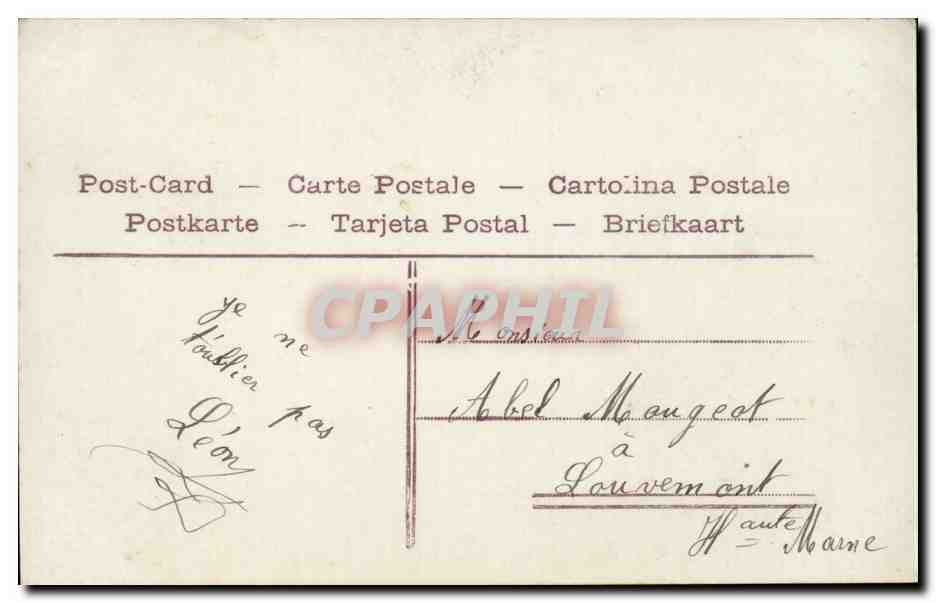 Post-Card — Carte Postale — Cartolina Postale
Postkarte -- Tarjeta Postal — Briefkaart
CPAPHIL
je ne
t'oublier pas
Léon
Monsieur
Abel Mougeot
à
Louvemont
Haute Marne